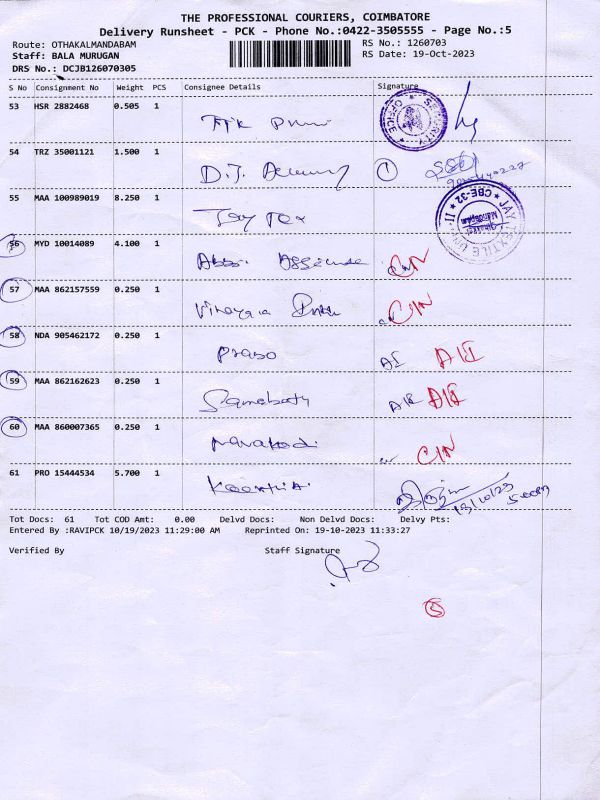 THE PROFESSIONAL COURIERS, COIMBATORE
Delivery Runsheet - PCK - Phone No.:0422-3505555 - Page No.:5
Route: OTHAKALMANDABAM RS No.: 1260703
Staff: BALA MURUGAN RS Date: 19-Oct-2023
DRS No.: DCJB126070305
S No Consignment No Weight PCS Consignee Details Signature
53 HSR 2882468 0.505 1
SECURITY OFFICE
54 TRZ 35001121 1.500 1 D.J. 1
55 MAA 100989019 8.250 1 Jay Tex
JAY TEXTILE UNIT II CBE-32
56 MYD 10014089 4.100 1 C/N
57 MAA 862157559 0.250 1 C/N
58 NDA 905462172 0.250 1
59 MAA 862162623 0.250 1
60 MAA 860007365 0.250 1 C/N
61 PRO 15444534 5.700 1
Tot Docs: 61 Tot COD Amt: 0.00 Delvd Docs: Non Delvd Docs: Delvy Pts:
Entered By :RAVIPCK 10/19/2023 11:29:00 AM Reprinted On: 19-10-2023 11:33:27
Verified By Staff Signature
5